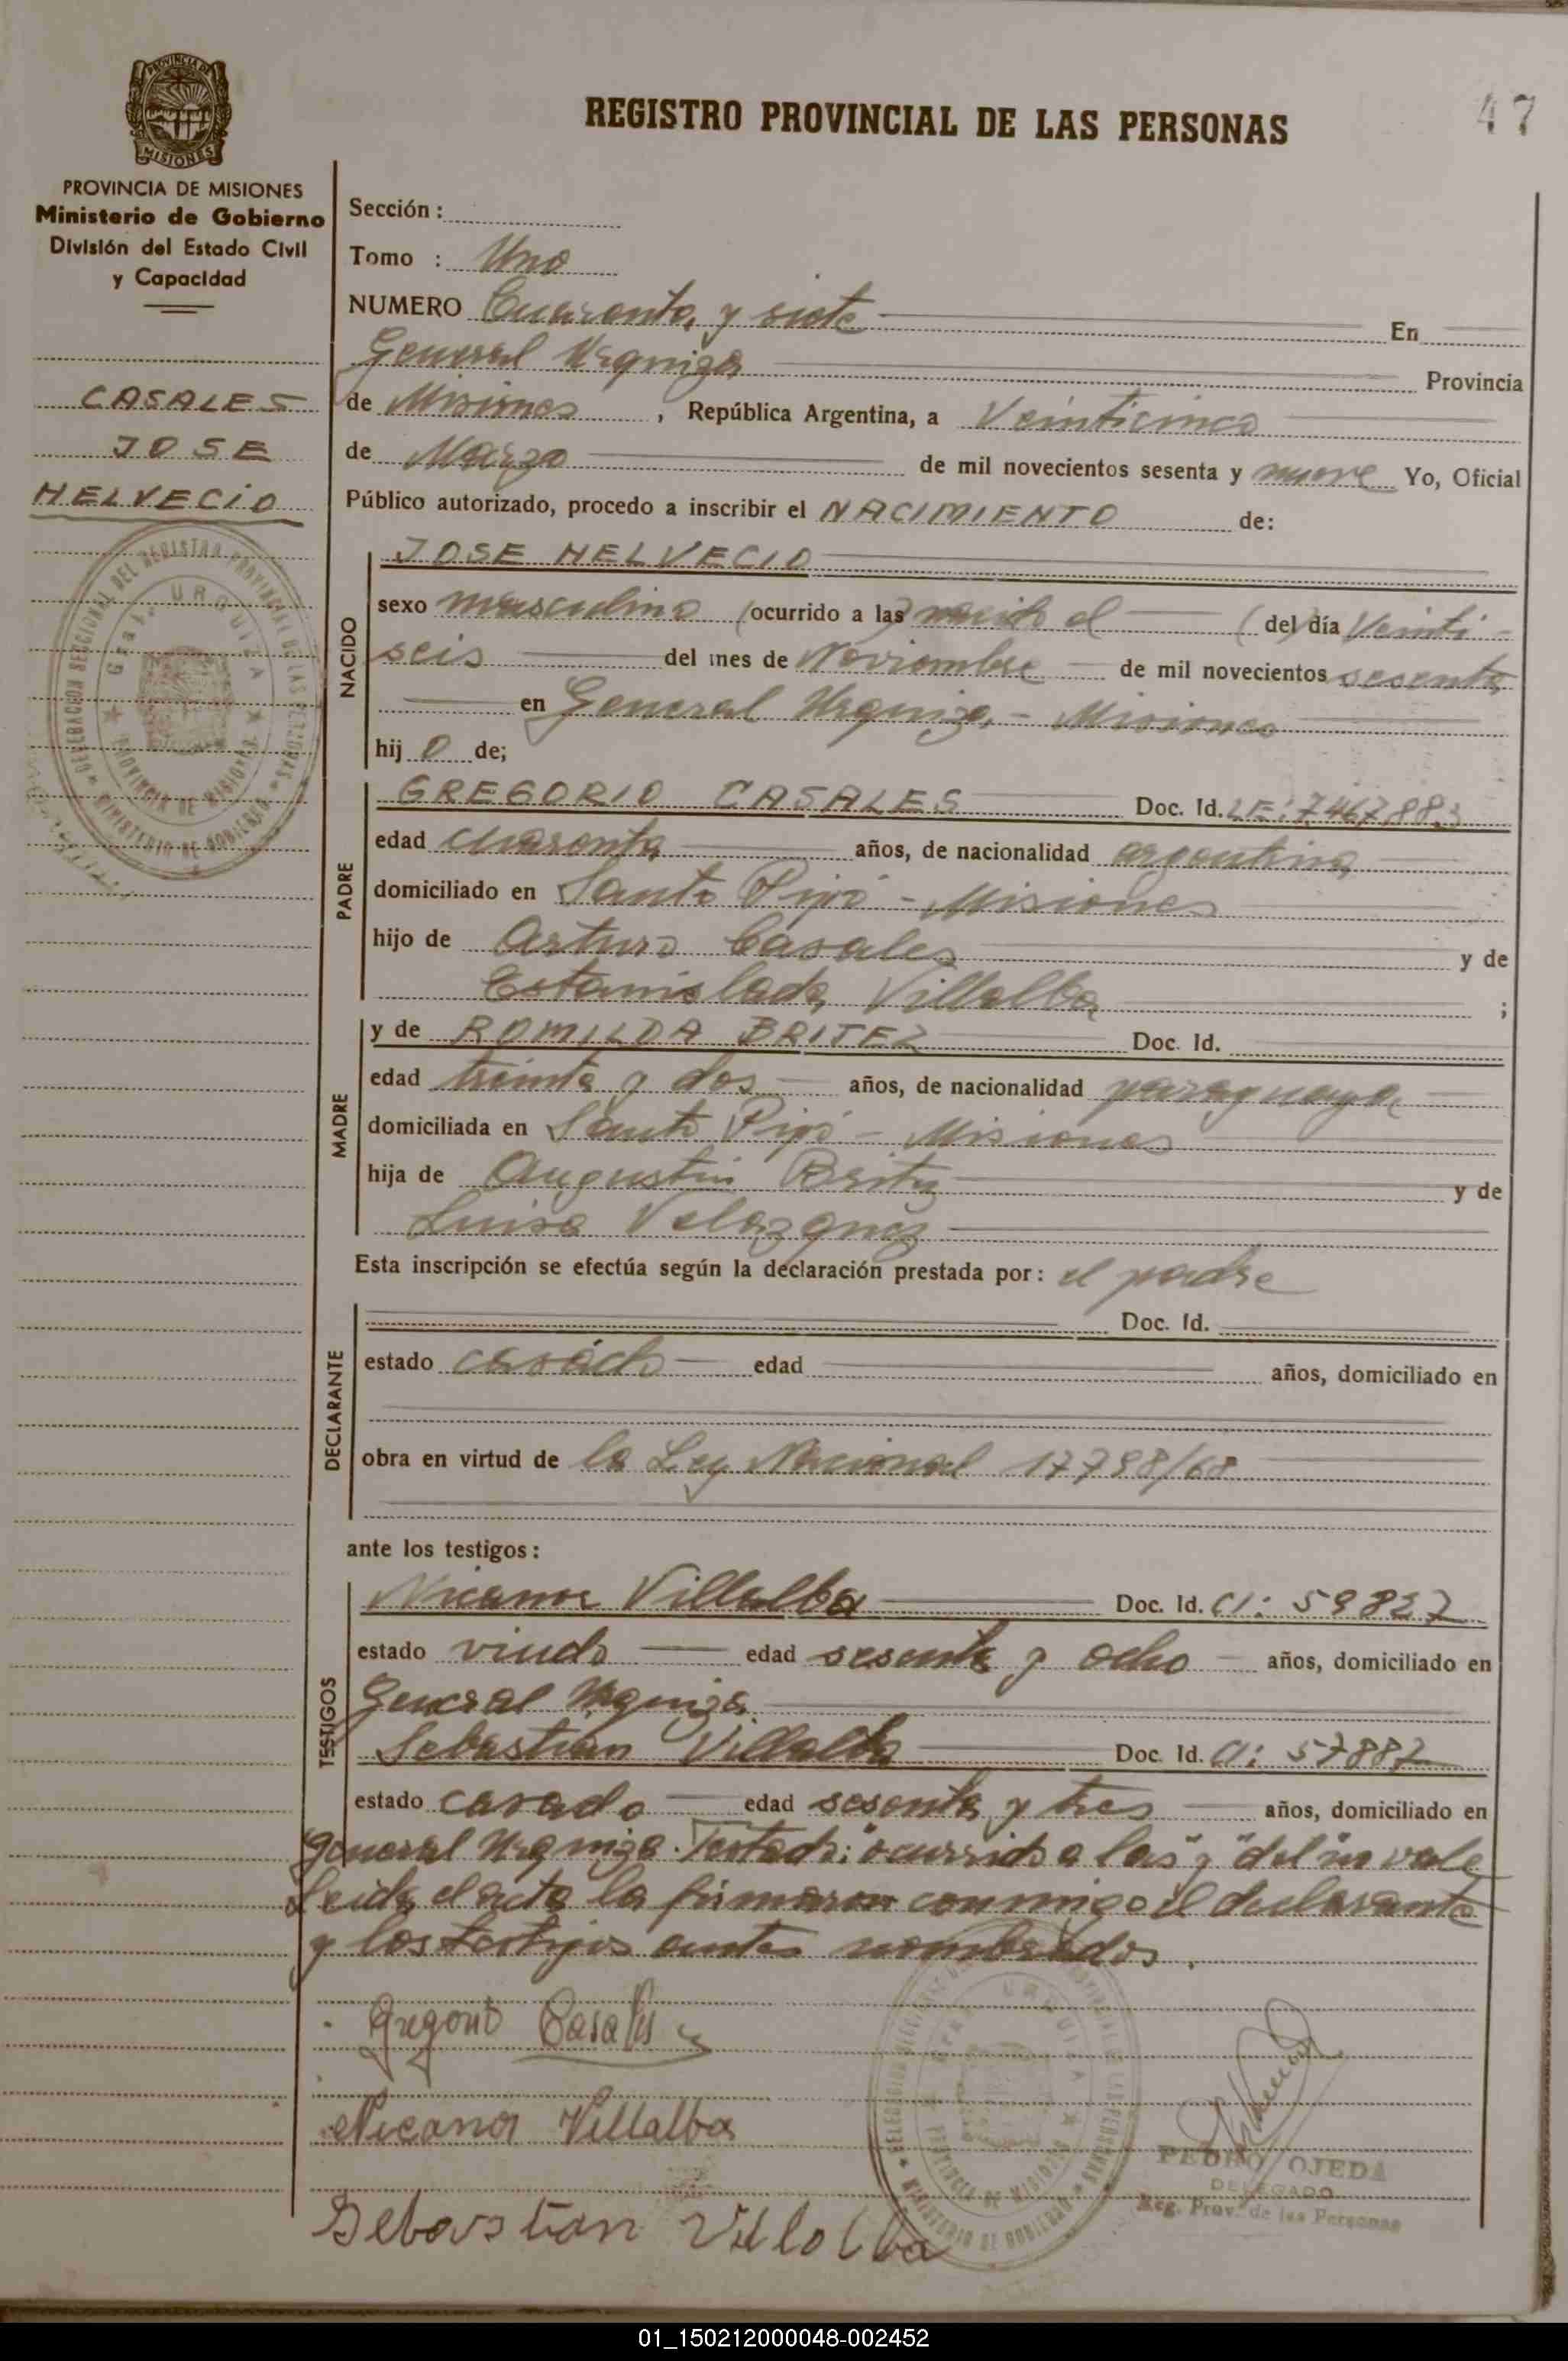 REGISTRO PROVINCIAL DE LAS PERSONAS
47
PROVINCIA DE MISIONES
Ministerio de Gobierno
División del Estado Civil
y Capacidad
CASALES
JOSE
HELVECIO
Sección :
Tomo : Uno
NUMERO Cuarenta y siete En
General Urquiza Provincia
de Misiones , República Argentina, a Veinticinco
de Marzo de mil novecientos sesenta y nueve Yo, Oficial
Público autorizado, procedo a inscribir el NACIMIENTO de:
NACIDO
JOSE HELVECIO
sexo masculino (ocurrido a las) nacido el (del) día Veinti-
seis del mes de Noviembre de mil novecientos sesenta
en General Urquiza, - Misiones
hij o de;
PADRE
GREGORIO CASALES Doc. Id. LE: 7.467.883
edad cuarenta años, de nacionalidad argentina
domiciliado en Santo Pipó - Misiones
hijo de Arturo Casales y de
Estanislada Villalba ;
MADRE
y de ROMILDA BRITEZ Doc. Id.
edad treinta y dos años, de nacionalidad paraguaya
domiciliada en Santo Pipó - Misiones
hija de Augustin Britez y de
Luisa Velazquez
Esta inscripción se efectúa según la declaración prestada por: el padre
DECLARANTE
Doc. Id.
estado casado edad años, domiciliado en
obra en virtud de la Ley Nacional 17798/68
ante los testigos:
TESTIGOS
Nicanor Villalba Doc. Id. CI: 59827
estado viudo edad sesenta y ocho años, domiciliado en
General Urquiza
Sebastian Villalba Doc. Id. CI: 57887
estado casado edad sesenta y tres años, domiciliado en
General Urquiza. Testado: "ocurrido a las" y "del" no vale
Leida el acta la firmaron conmigo el declarante
y los testigos antes nombrados.
Gregorio Casales
Nicanor Villalba
Sebastian Villalba
PEDRO OJEDA
DELEGADO
Reg. Prov. de las Personas
DELEGACION SECCIONAL DEL REGISTRO PROVINCIAL DE LAS PERSONAS
MINISTERIO DE GOBIERNO
Gral. URQUIZA
PROVINCIA DE MISIONES
01_150212000048-002452